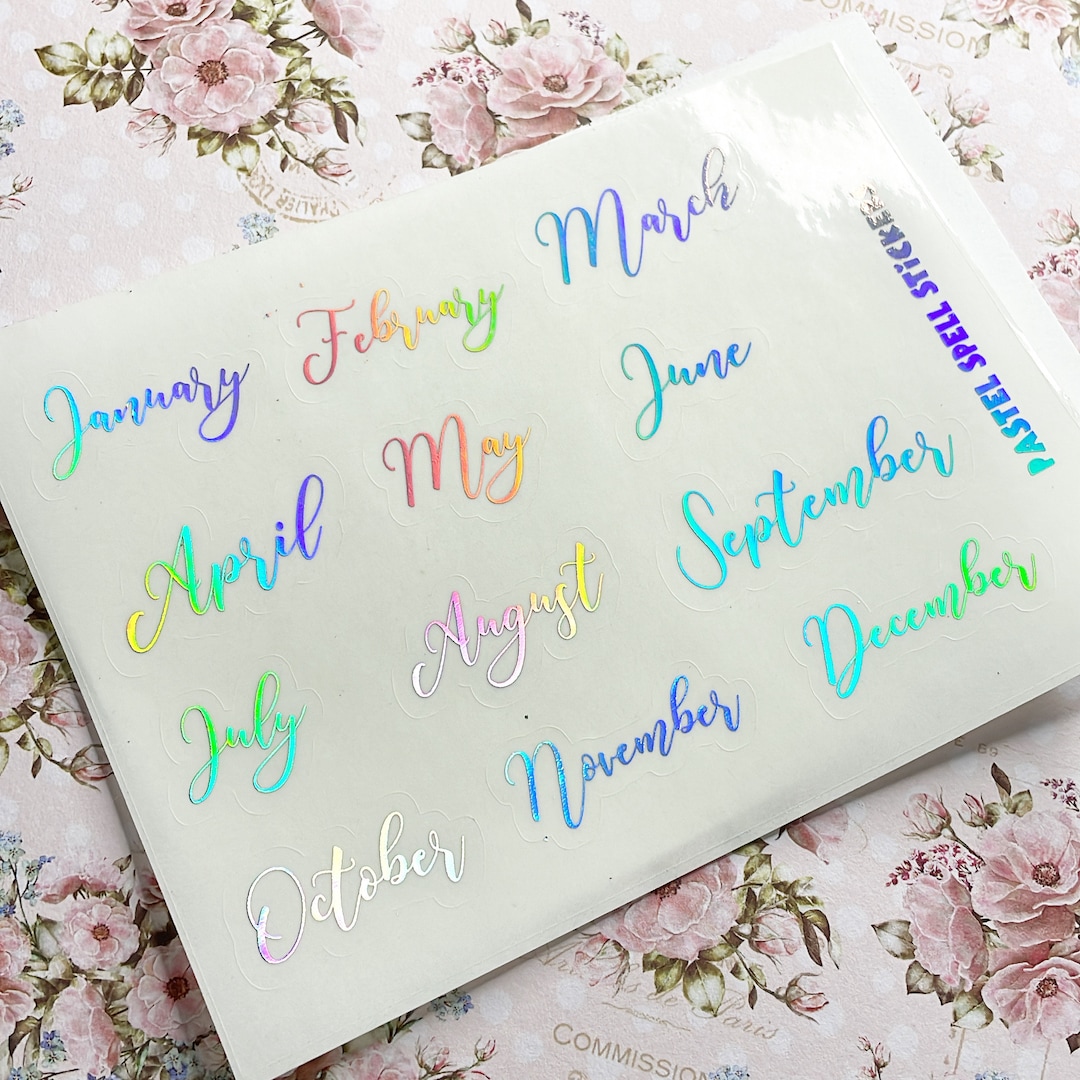 COMMISSION
January
February
March
April
May
June
July
August
September
October
November
December
PASTEL SPELL STiCKER
COMMISSION